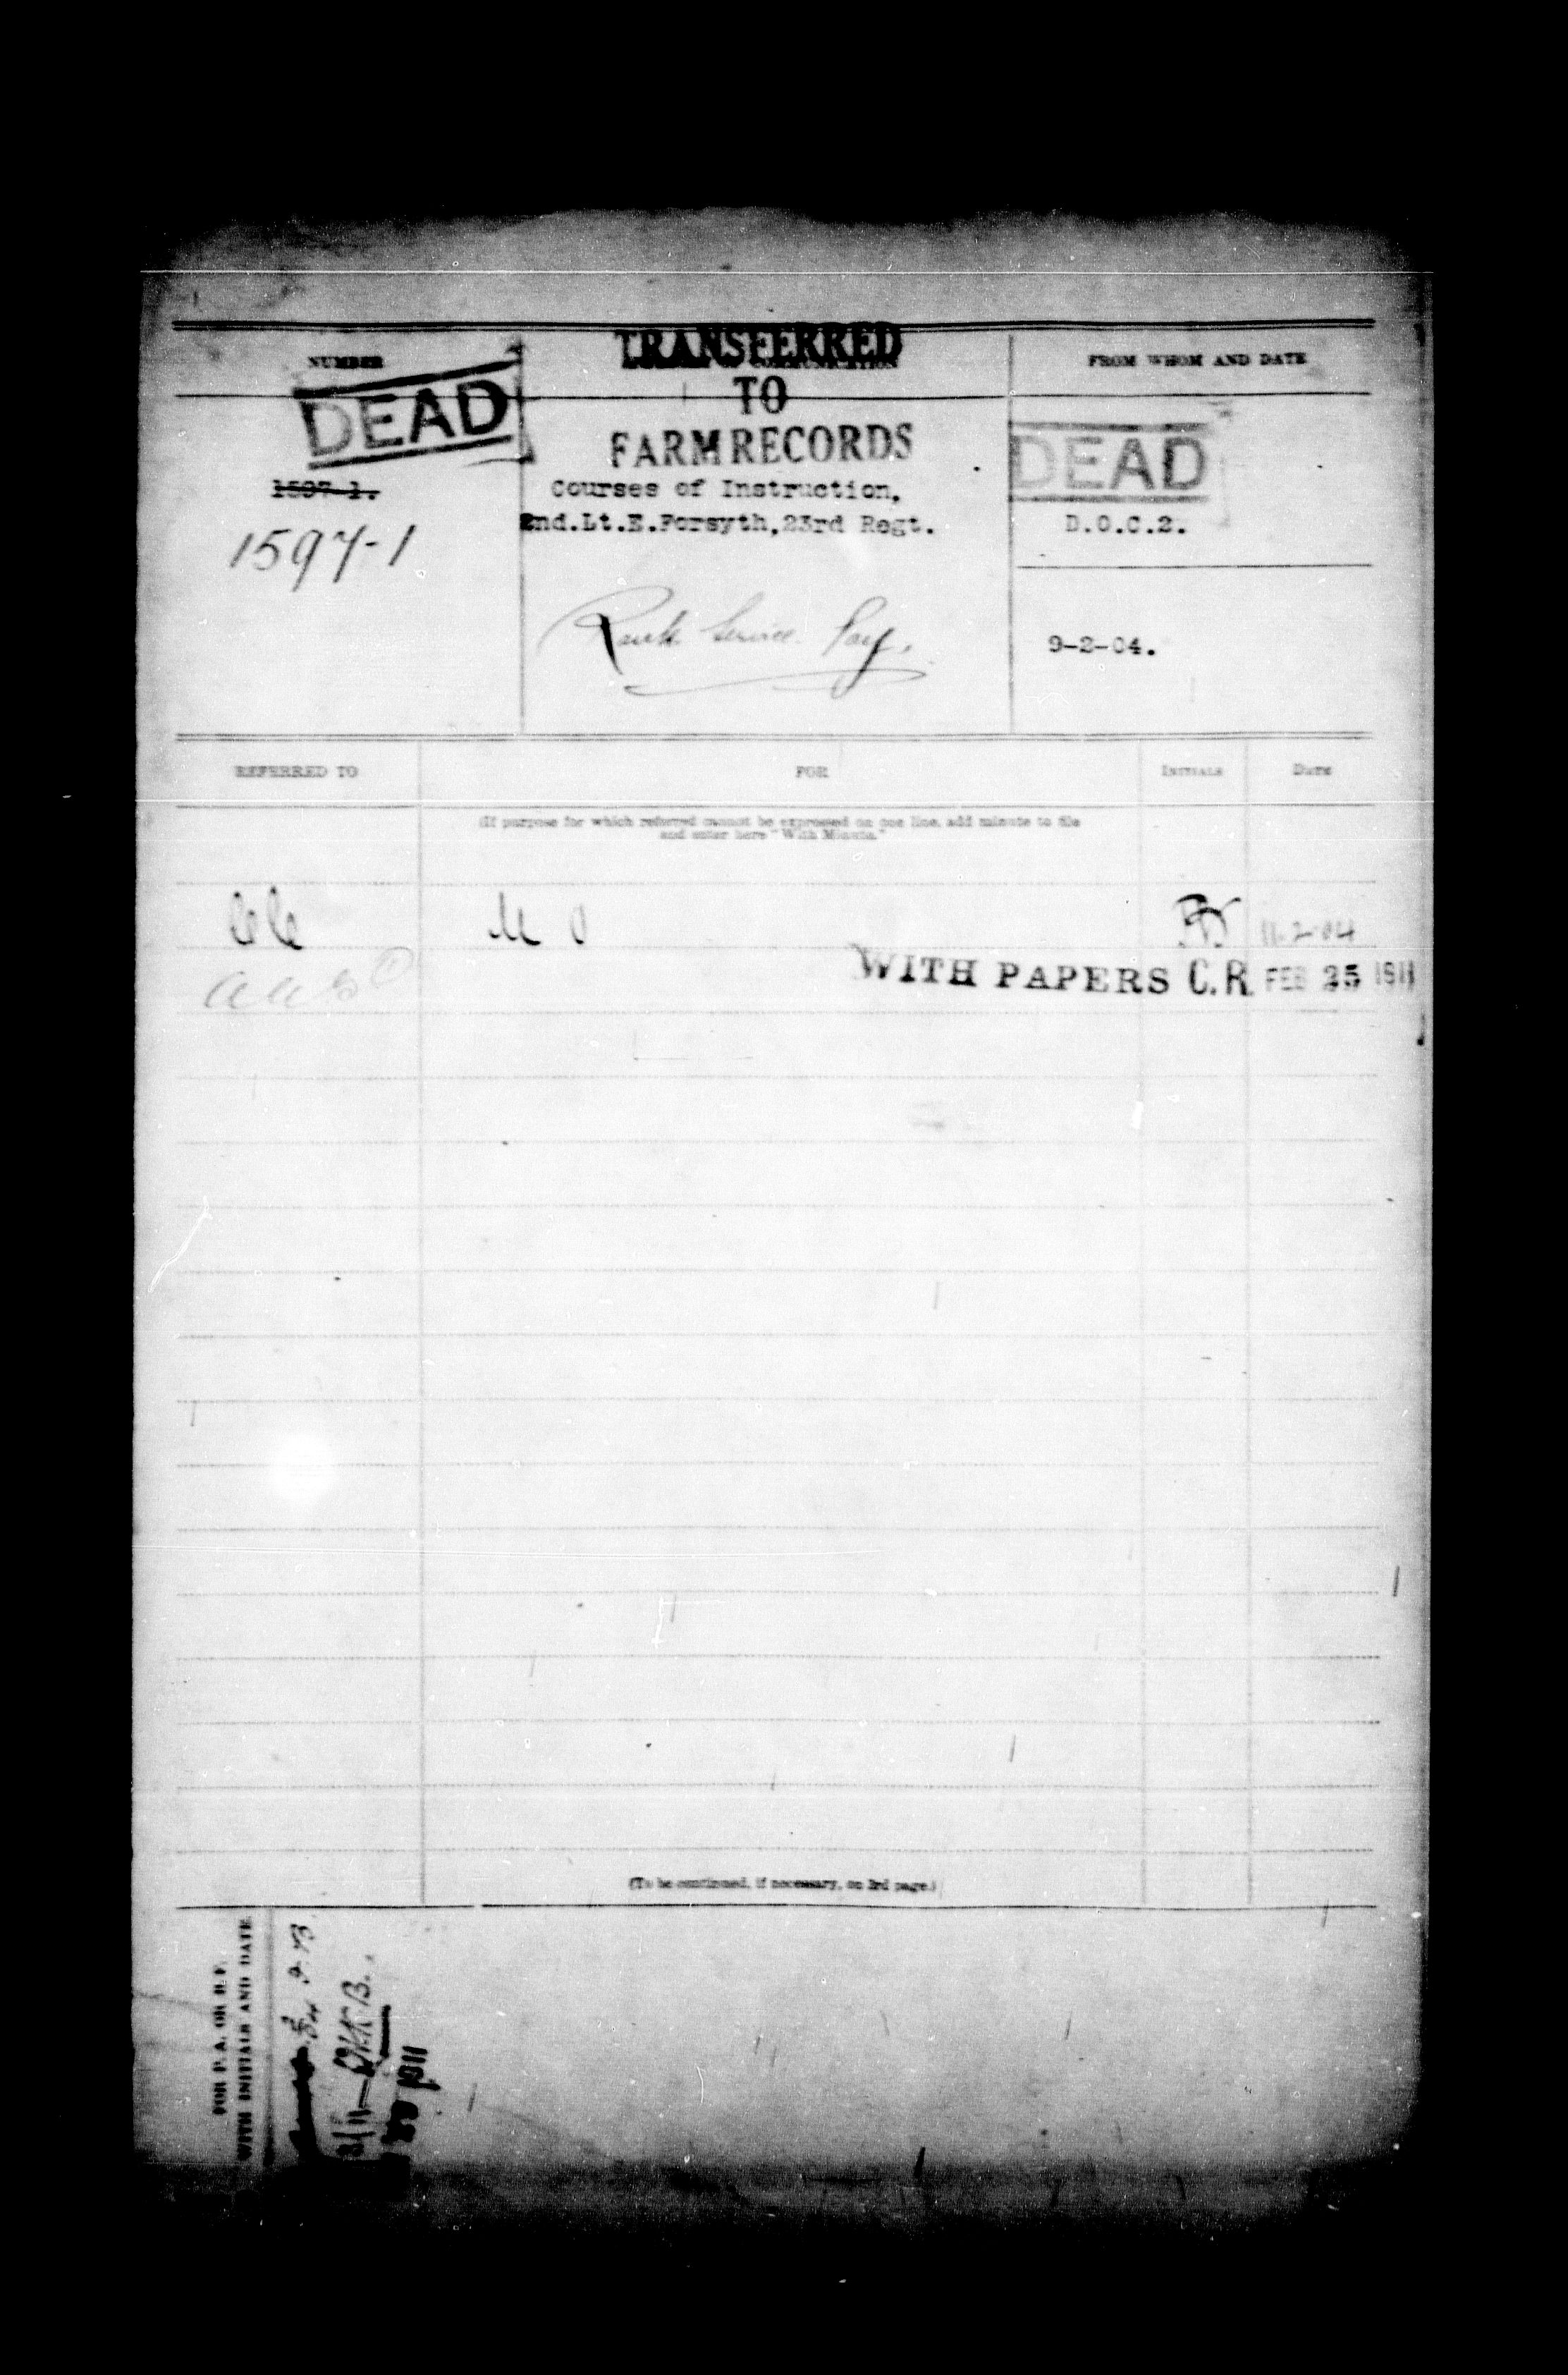 NUMBER
DEAD
1597-1.
1597-1
TRANSFERRED
TO
FARM RECORDS
Courses of Instruction,
2nd.Lt.E.Forsyth,23rd Regt.
Rank Service Pay.
FROM WHOM AND DATE
DEAD
D.O.C.2.
9-2-04.
REFERRED TO FOR INITIALS DATE
(If purpose for which referred cannot be expressed on one line, add minute to file
and enter here "With Minute."
11-2-04
WITH PAPERS C.R. FEB 25 1911
(To be continued, if necessary, on 3rd page.)
FOR P. A. OR B. F.
WITH INITIALS AND DATE